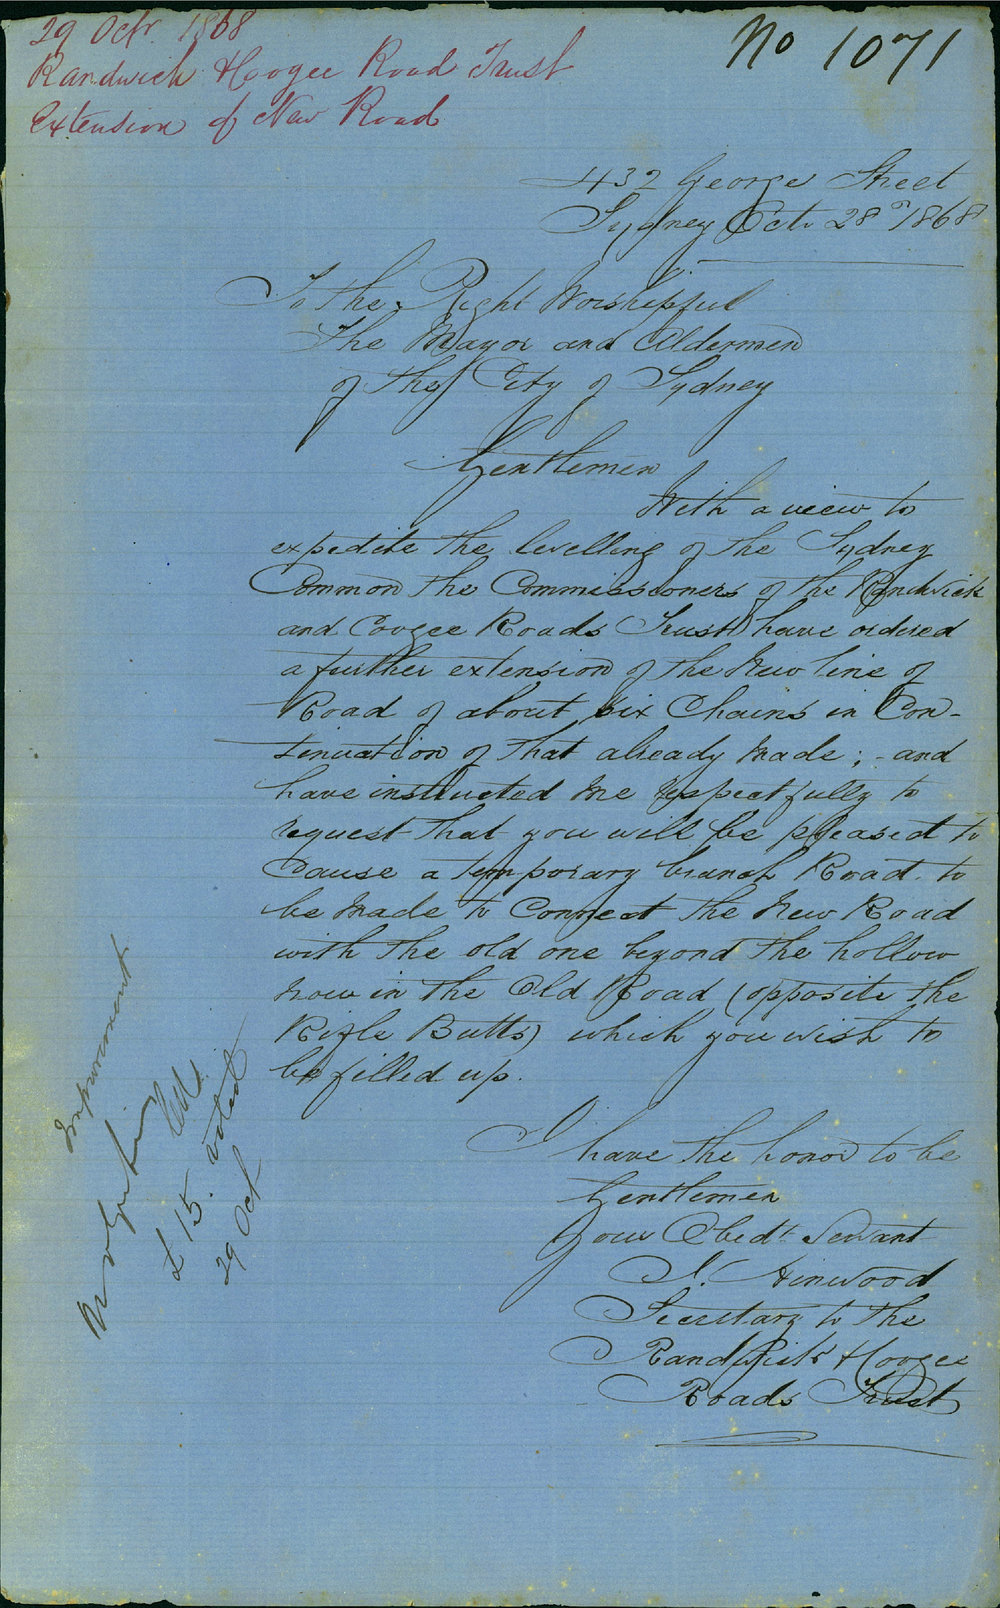 29 Octr. 1868
Randwick & Coogee Road Trust
Extension of New Road
No 1071
432 George Street
Sydney Oct. 28th 1868
To the Right Worshipful
The Mayor and Aldermen
of the City of Sydney
Gentlemen
With a view to
expedite the levelling of the Sydney
Common the Commissioners of the Randwick
and Coogee Roads Trust have ordered
a further extension of the New line of
Road of about six Chains in Con-
tinuation of that already made; - and
have instructed me respectfully to
request that you will be pleased to
Cause a temporary branch Road to
be made to Connect the New Road
with the old one beyond the hollow
now in the Old Road (opposite the
Rifle Butts) which you wish to
be filled up.
I have the honor to be
Gentlemen
Your Obedt. Servant
Hinwood
Secretary to the
Randwick & Coogee
Roads Trust
Improvement
£15. voted
29 Oct